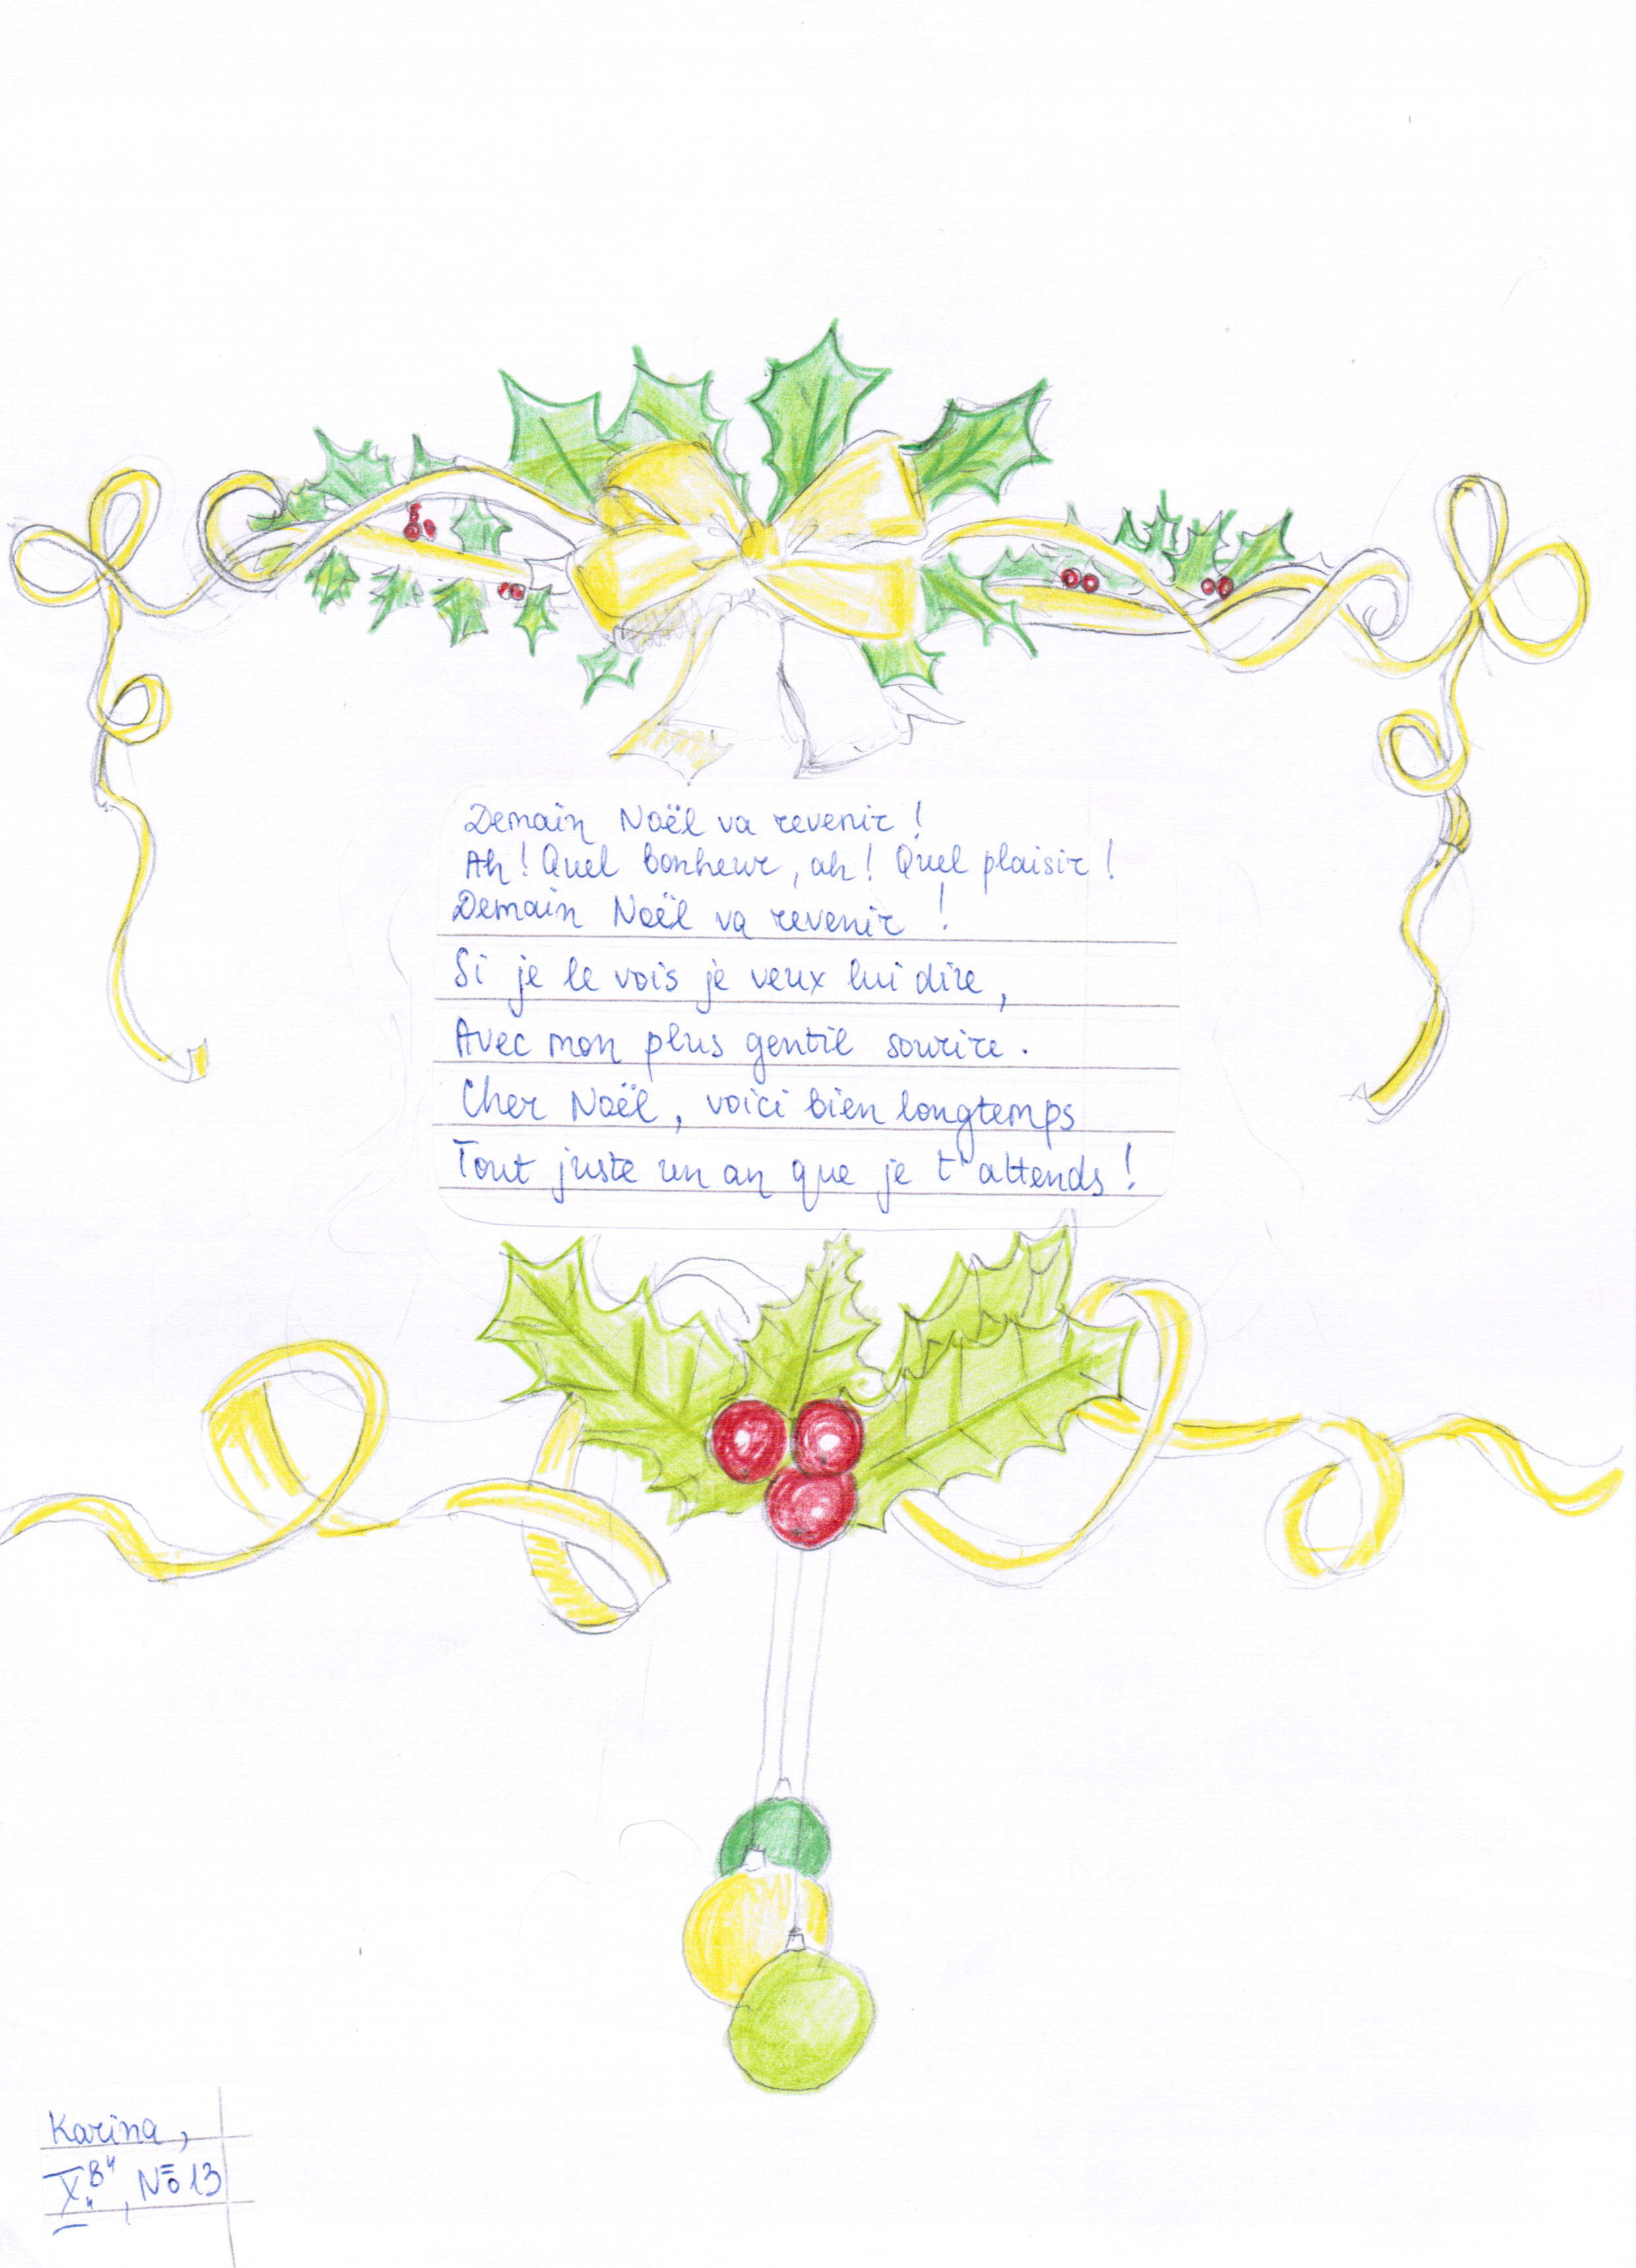 Demain Noël va revenir !
Ah ! Quel bonheur, ah ! Quel plaisir !
Demain Noël va revenir !
Si je le vois je veux lui dire,
Avec mon plus gentil sourire.
Cher Noël, voici bien longtemps
Tout juste un an que je t'attends !
Karina,
X "B", № 13